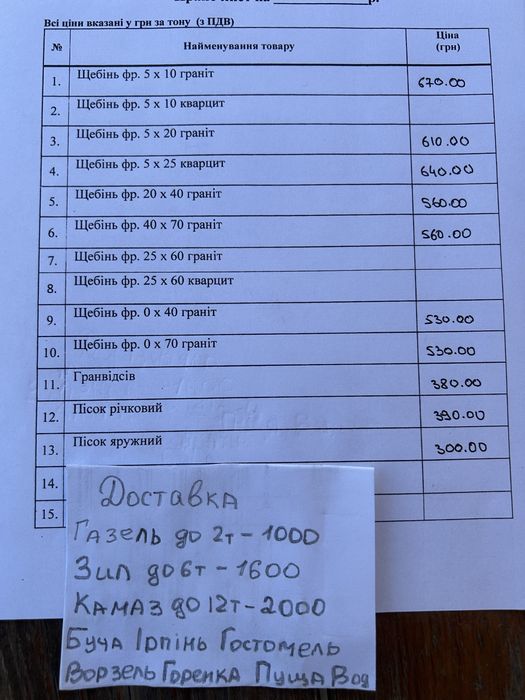 Всі ціни вказані у грн за тону (з ПДВ)
№ Найменування товару Ціна (грн)
1. Щебінь фр. 5 х 10 граніт 670.00
2. Щебінь фр. 5 х 10 кварцит
3. Щебінь фр. 5 х 20 граніт 610.00
4. Щебінь фр. 5 х 25 кварцит 640.00
5. Щебінь фр. 20 х 40 граніт 560.00
6. Щебінь фр. 40 х 70 граніт 560.00
7. Щебінь фр. 25 х 60 граніт
8. Щебінь фр. 25 х 60 кварцит
9. Щебінь фр. 0 х 40 граніт 530.00
10. Щебінь фр. 0 х 70 граніт 530.00
11. Гранвідсів 380.00
12. Пісок річковий 390.00
13. Пісок яружний 300.00
14.
15.
Доставка
Газель до 2т - 1000
Зил до 6т - 1600
Камаз до 12т - 2000
Буча Ірпінь Гостомель
Ворзель Горенка Пуща Вод